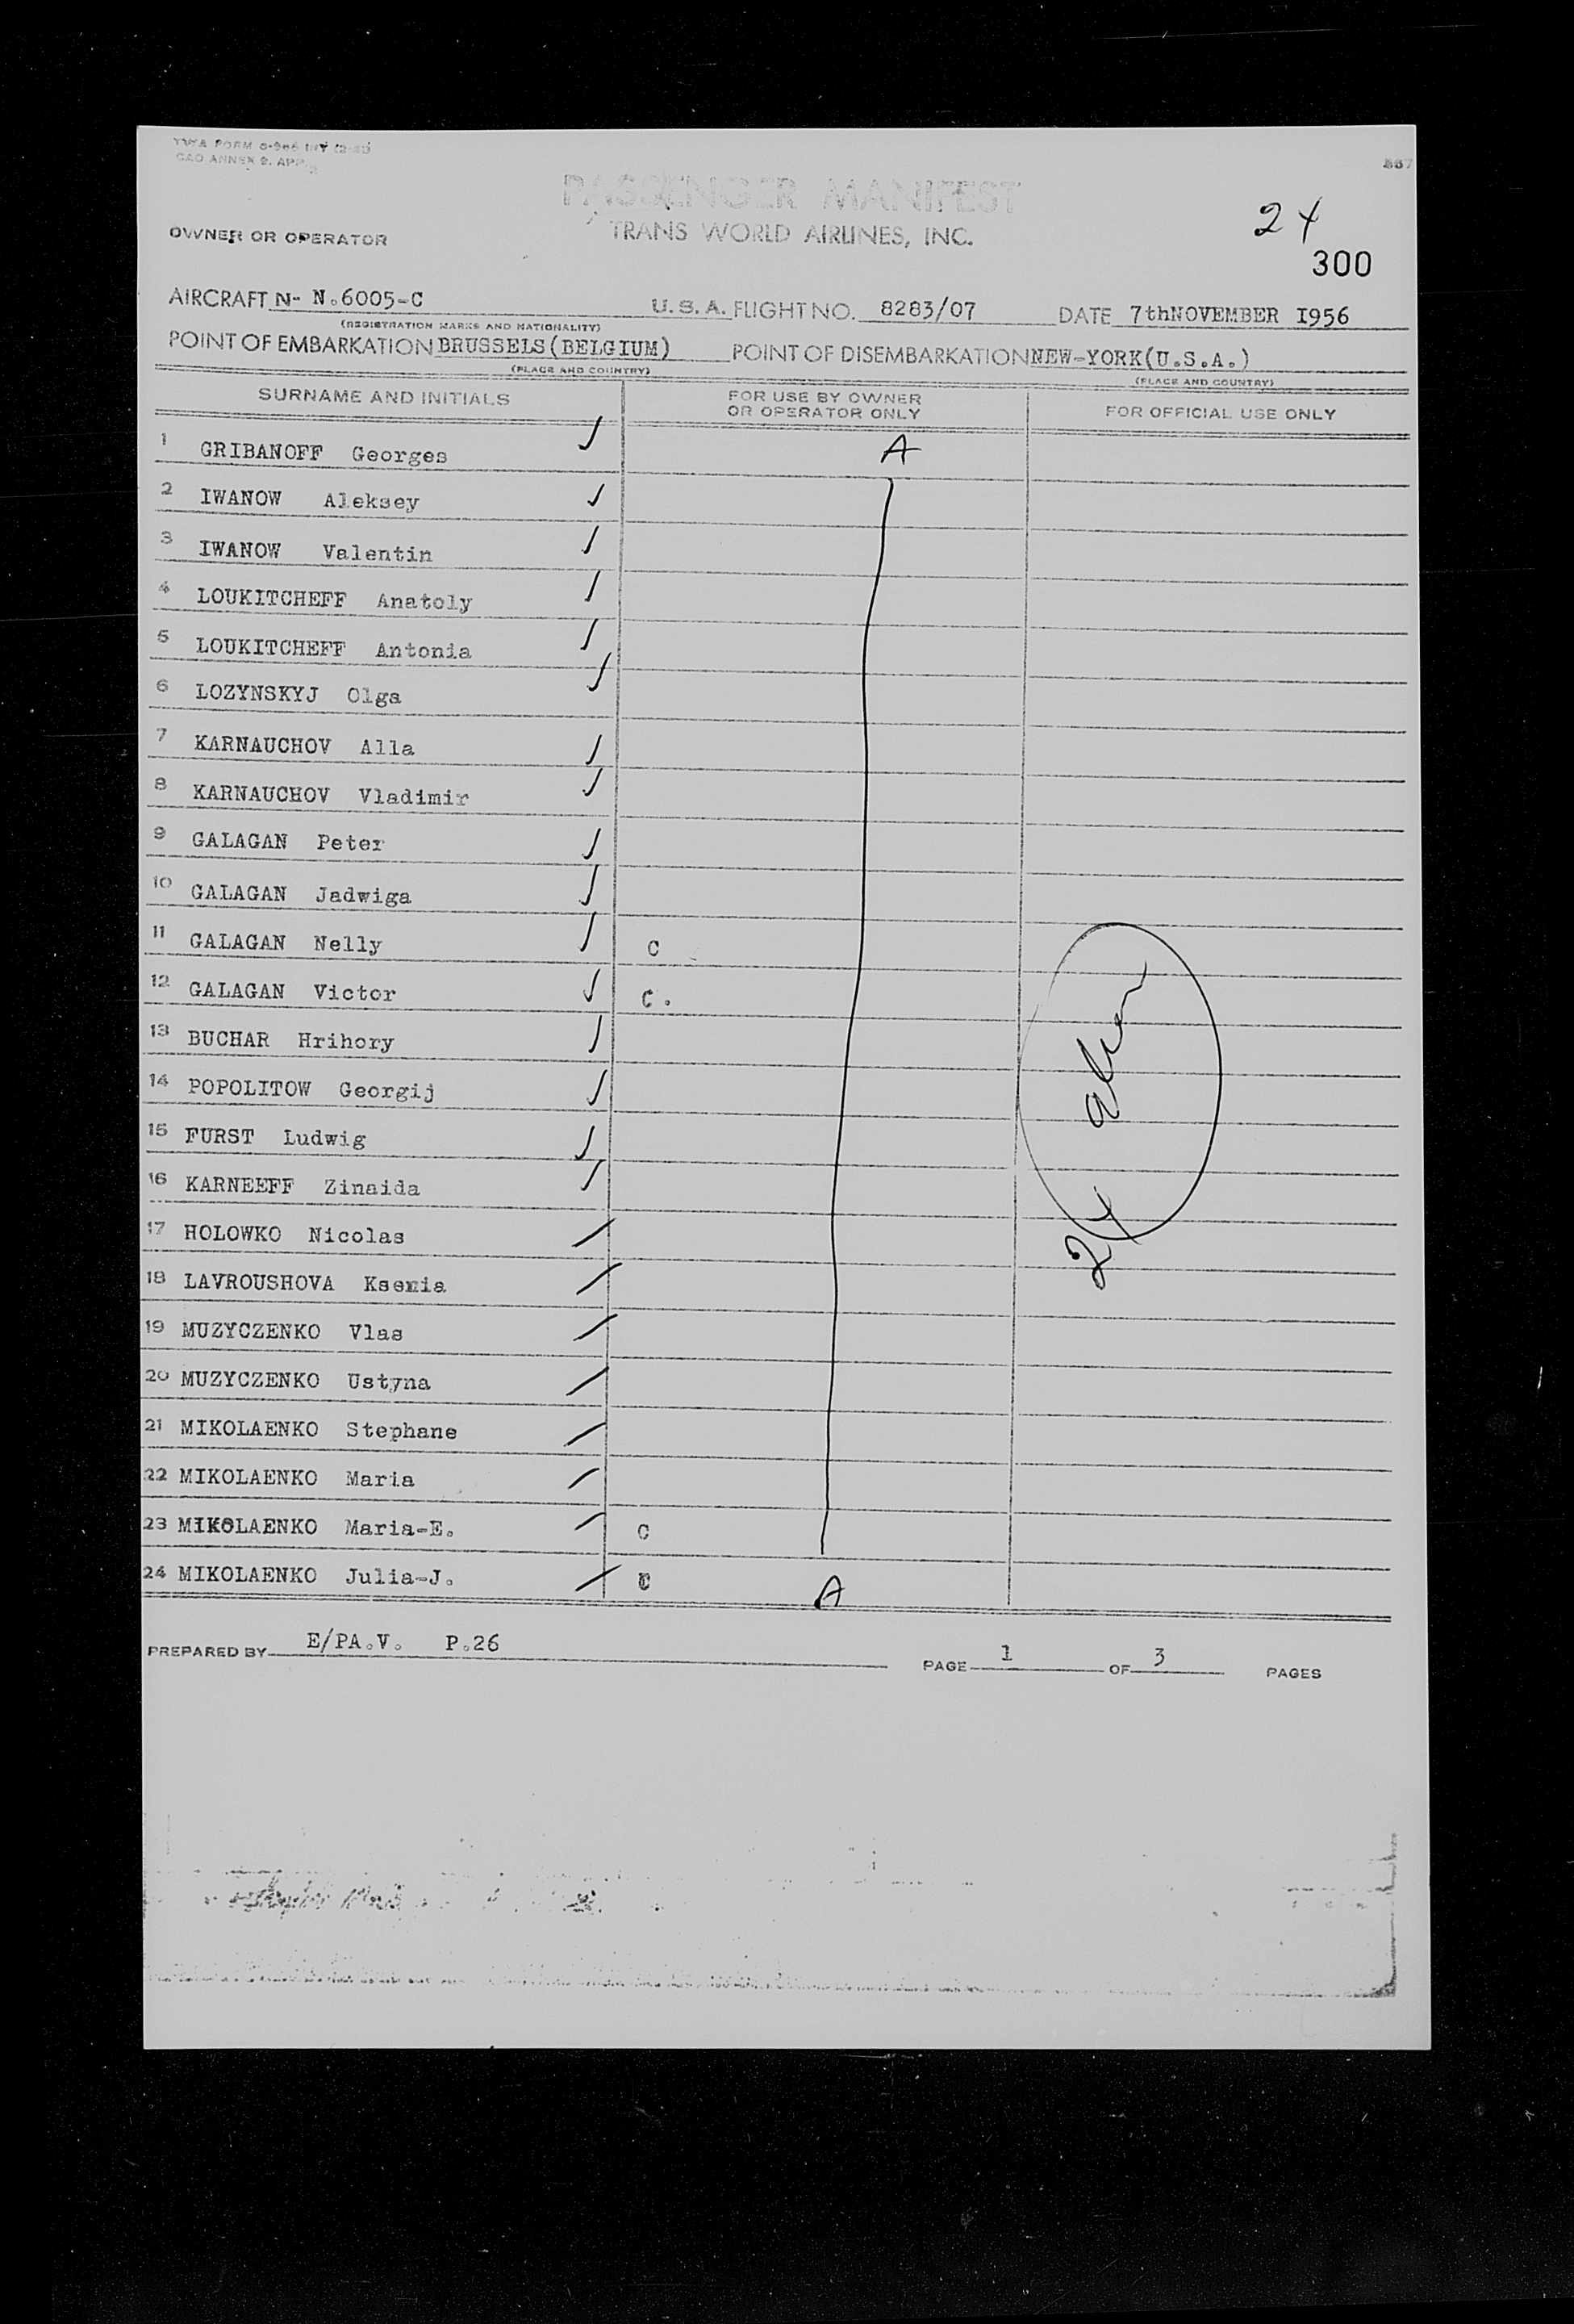 TWA FORM
CAO ANNEX 9. APP.
PASSENGER MANIFEST
24
OWNER OR OPERATOR TRANS WORLD AIRLINES, INC.
300
AIRCRAFT N- N.6005-C U.S.A. FLIGHT NO. 8283/07 DATE 7thNOVEMBER I956
(REGISTRATION MARKS AND NATIONALITY)
POINT OF EMBARKATION BRUSSELS(BELGIUM) POINT OF DISEMBARKATION NEW-YORK(U.S.A.)
(PLACE AND COUNTRY) (PLACE AND COUNTRY)
SURNAME AND INITIALS FOR USE BY OWNER OR OPERATOR ONLY FOR OFFICIAL USE ONLY
1 GRIBANOFF Georges A
2 IWANOW Aleksey
3 IWANOW Valentin
4 LOUKITCHEFF Anatoly
5 LOUKITCHEFF Antonia
6 LOZYNSKYJ Olga
7 KARNAUCHOV Alla
8 KARNAUCHOV Vladimir
9 GALAGAN Peter
10 GALAGAN Jadwiga
11 GALAGAN Nelly C
12 GALAGAN Victor C.
13 BUCHAR Hrihory
14 POPOLITOW Georgij
15 FURST Ludwig
16 KARNEEFF Zinaida
17 HOLOWKO Nicolas
18 LAVROUSHOVA Ksenia
19 MUZYCZENKO Vlas
20 MUZYCZENKO Ustyna
21 MIKOLAENKO Stephane
22 MIKOLAENKO Maria
23 MIKOLAENKO Maria-E. C
24 MIKOLAENKO Julia-J. C A
24 alien
PREPARED BY E/PA.V. P.26 PAGE 1 OF 3 PAGES